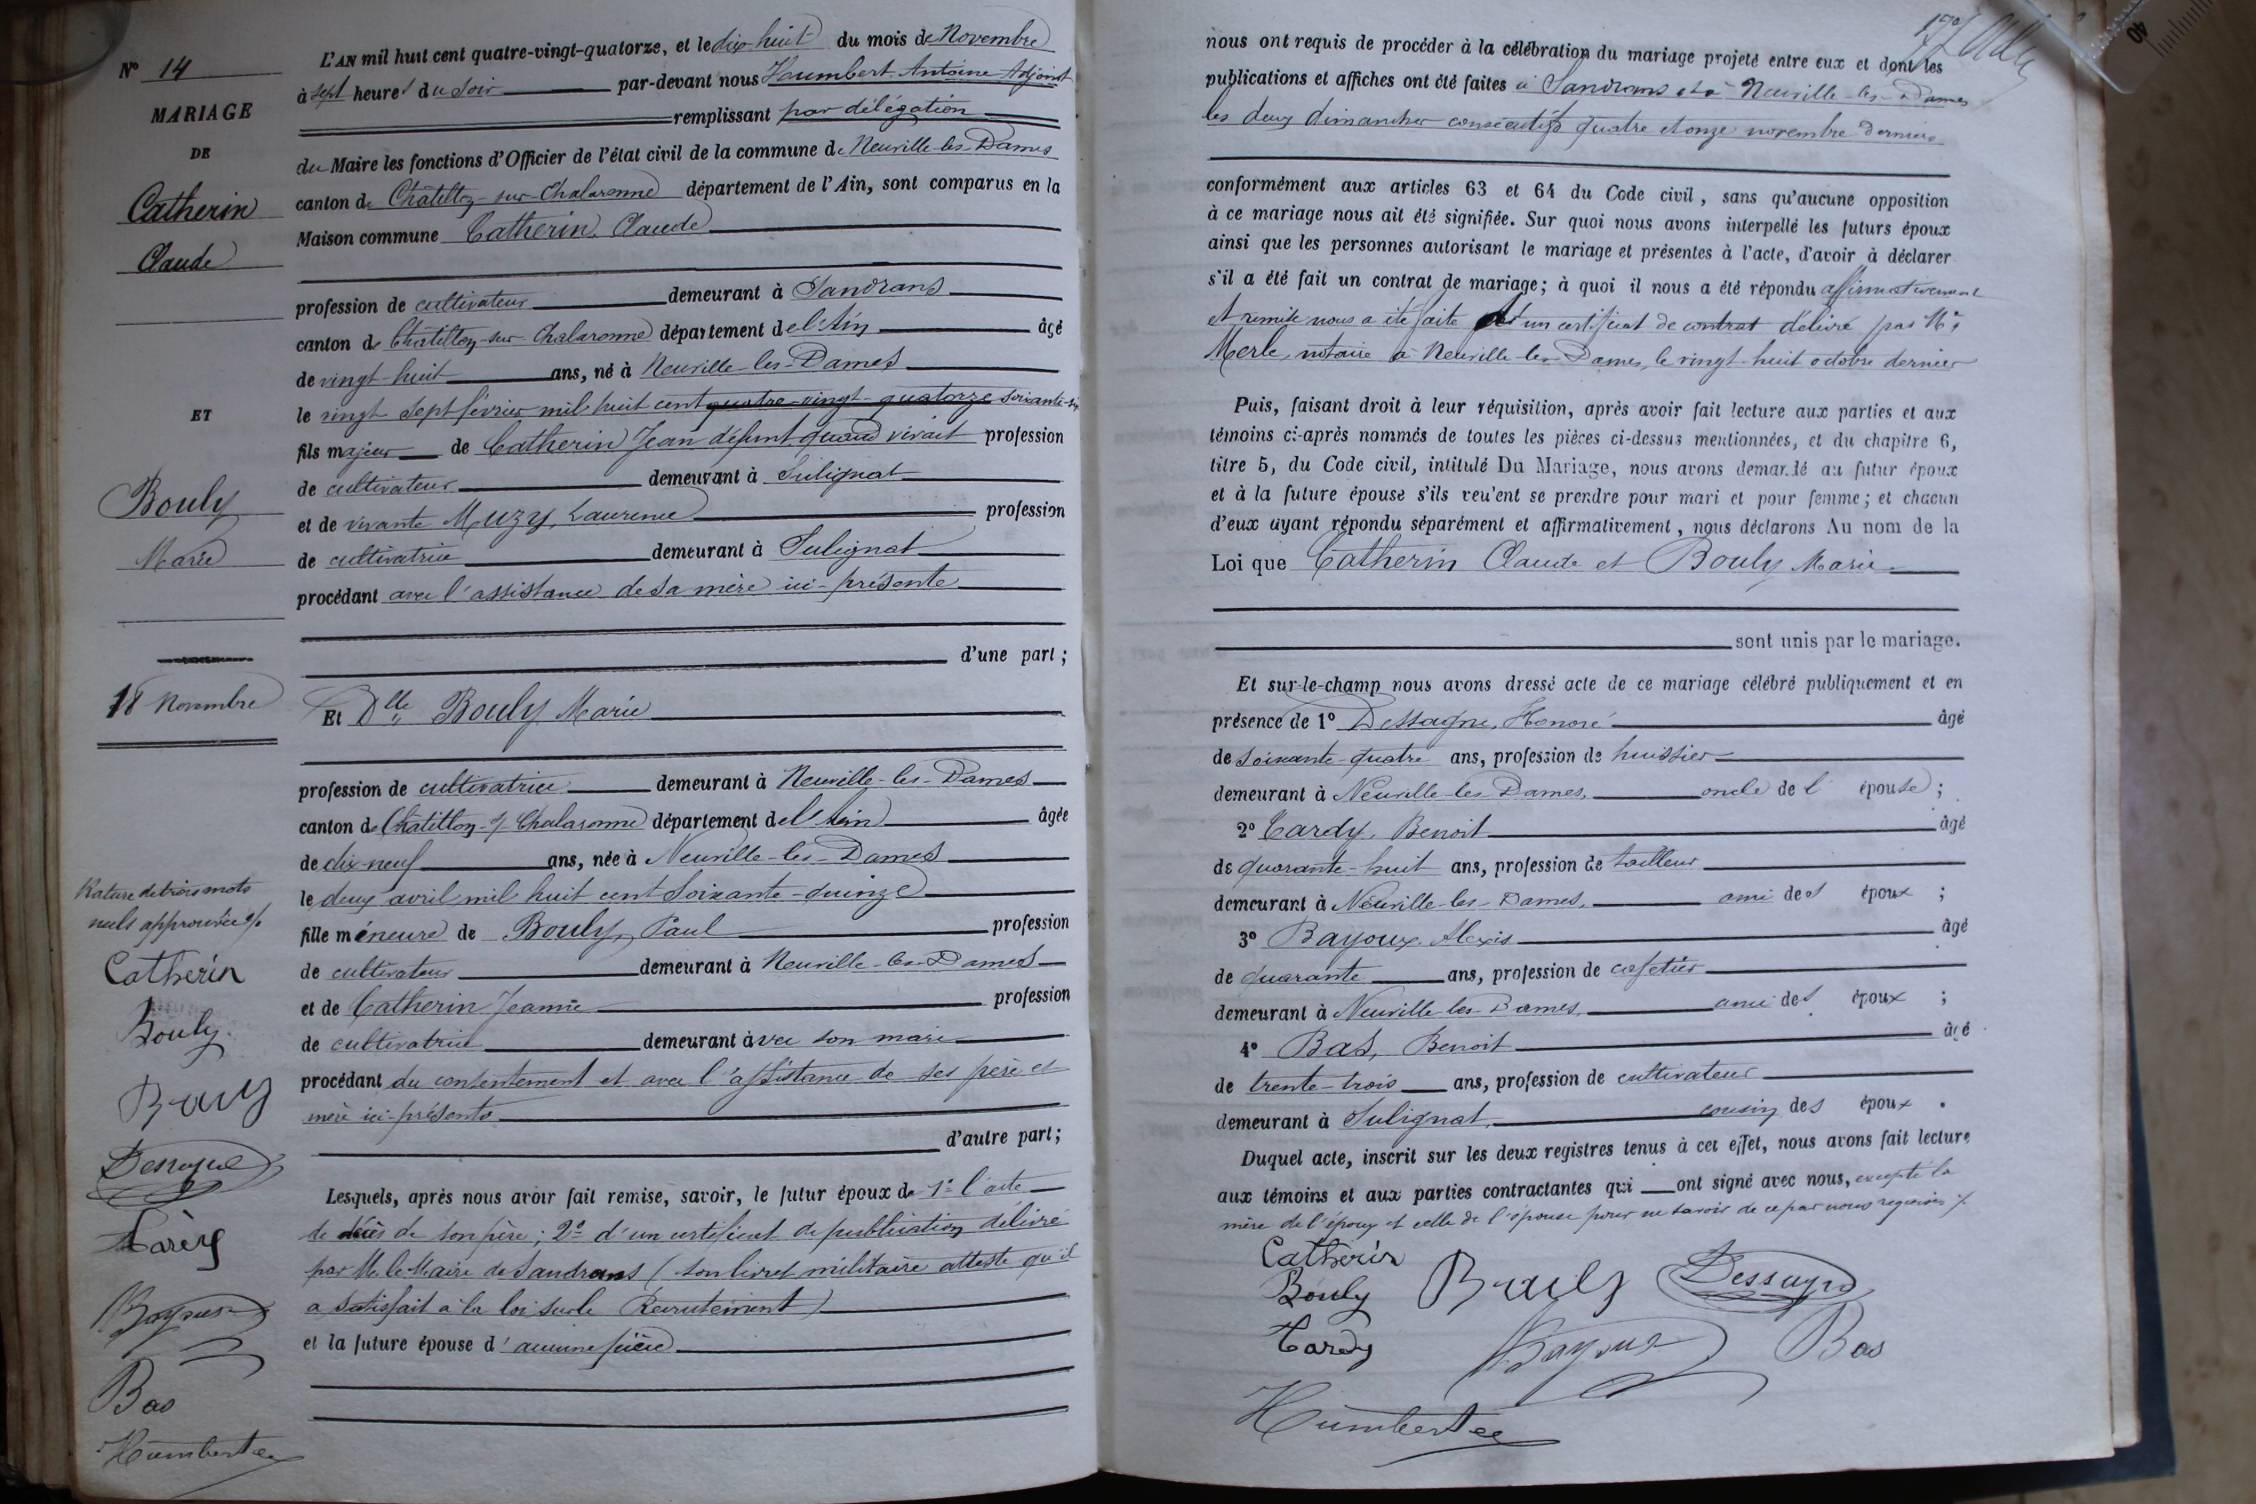 N° 14
MARIAGE
DE
Catherin
Claude
ET
Bouly
Marie
18 Novembre
Rature de trois mots
nuls approuvée
Catherin
Bouly
Bouly
Dessaigne
Tardy
Bayoux
Bas
Humbert
L'AN mil huit cent quatre-vingt-quatorze, et le dix-huit du mois de Novembre
à sept heures du soir par-devant nous Humbert Antoine Adjoint
remplissant par délégation
du Maire les fonctions d'Officier de l'état civil de la commune de Neuville-les-Dames
canton de Châtillon-sur-Chalaronne département de l'Ain, sont comparus en la
Maison commune Catherin, Claude
profession de cultivateur demeurant à Sandrans
canton de Châtillon-sur-Chalaronne département de l'Ain âgé
de vingt-huit ans, né à Neuville-les-Dames
le vingt sept février mil huit cent quatre-vingt-quatorze soixante-six
fils majeur de Catherin Jean défunt, quand vivait profession
de cultivateur demeurant à Sulignat
et de vivante Muzy, Laurence profession
de cultivatrice demeurant à Sulignat
procédant avec l'assistance de sa mère ici-présente
d'une part ;
Et Dlle Bouly Marie
profession de cultivatrice demeurant à Neuville-les-Dames
canton de Châtillon-s/ Chalaronne département de l'Ain âgée
de dix-neuf ans, née à Neuville-les-Dames
le deux avril mil huit cent soixante-quinze
fille mineure de Bouly, Paul profession
de cultivateur demeurant à Neuville-les-Dames
et de Catherin Jeanne profession
de cultivatrice demeurant avec son mari
procédant du consentement et avec l'assistance de ses père et
mère ici-présents
d'autre part ;
Lesquels, après nous avoir fait remise, savoir, le futur époux de 1° l'acte
de décès de son père ; 2° d'un certificat de publication délivré
par M. le Maire de Sandrans ( son livret militaire atteste qu'il
a satisfait à la loi sur le Recrutement )
et la future épouse d'aucune pièce
nous ont requis de procéder à la célébration du mariage projeté entre eux et dont les
publications et affiches ont été faites à Sandrans et à Neuville-les-Dames
les deux dimanches consécutifs quatre et onze novembre derniers
conformément aux articles 63 et 64 du Code civil, sans qu'aucune opposition
à ce mariage nous ait été signifiée. Sur quoi nous avons interpellé les futurs époux
ainsi que les personnes autorisant le mariage et présentes à l'acte, d'avoir à déclarer
s'il a été fait un contrat de mariage ; à quoi il nous a été répondu affirmativement
et remise nous a été faite d'un certificat de contrat délivré par Me
Merle, notaire à Neuville-les-Dames, le vingt-huit octobre dernier
Puis, faisant droit à leur réquisition, après avoir fait lecture aux parties et aux
témoins ci-après nommés de toutes les pièces ci-dessus mentionnées, et du chapitre 6,
titre 5, du Code civil, intitulé Du Mariage, nous avons demandé au futur époux
et à la future épouse s'ils veulent se prendre pour mari et pour femme ; et chacun
d'eux ayant répondu séparément et affirmativement, nous déclarons Au nom de la
Loi que Catherin Claude et Bouly Marie
sont unis par le mariage.
Et sur-le-champ nous avons dressé acte de ce mariage célébré publiquement et en
présence de 1° Dessaigne, Honoré âgé
de soixante-quatre ans, profession de huissier
demeurant à Neuville-les-Dames, oncle de l' épouse ;
2° Tardy, Benoit âgé
de quarante-huit ans, profession de tailleur
demeurant à Neuville-les-Dames, ami des époux ;
3° Bayoux, Alexis âgé
de quarante ans, profession de cafetier
demeurant à Neuville-les-Dames, ami des époux ;
4° Bas, Benoit âgé
de trente-trois ans, profession de cultivateur
demeurant à Sulignat, cousin des époux .
Duquel acte, inscrit sur les deux registres tenus à cet effet, nous avons fait lecture
aux témoins et aux parties contractantes qui ont signé avec nous, excepté la
mère de l'époux et celle de l'épouse pour ne savoir de ce par nous requises
Catherin
Bouly Bouly Dessaigne
Tardy Bayoux Bas
Humbert